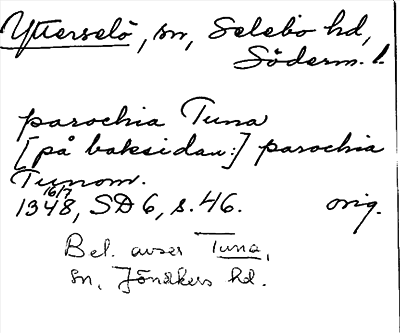 Ytterselö, sn, Selebo hd,
Söderm. l.
parochia Tuna
[på baksidan:] parochia
Tunom.
1348 16/7, SD 6, s. 46. orig.
Bel. avser Tuna,
sn, Jönåkers hd.